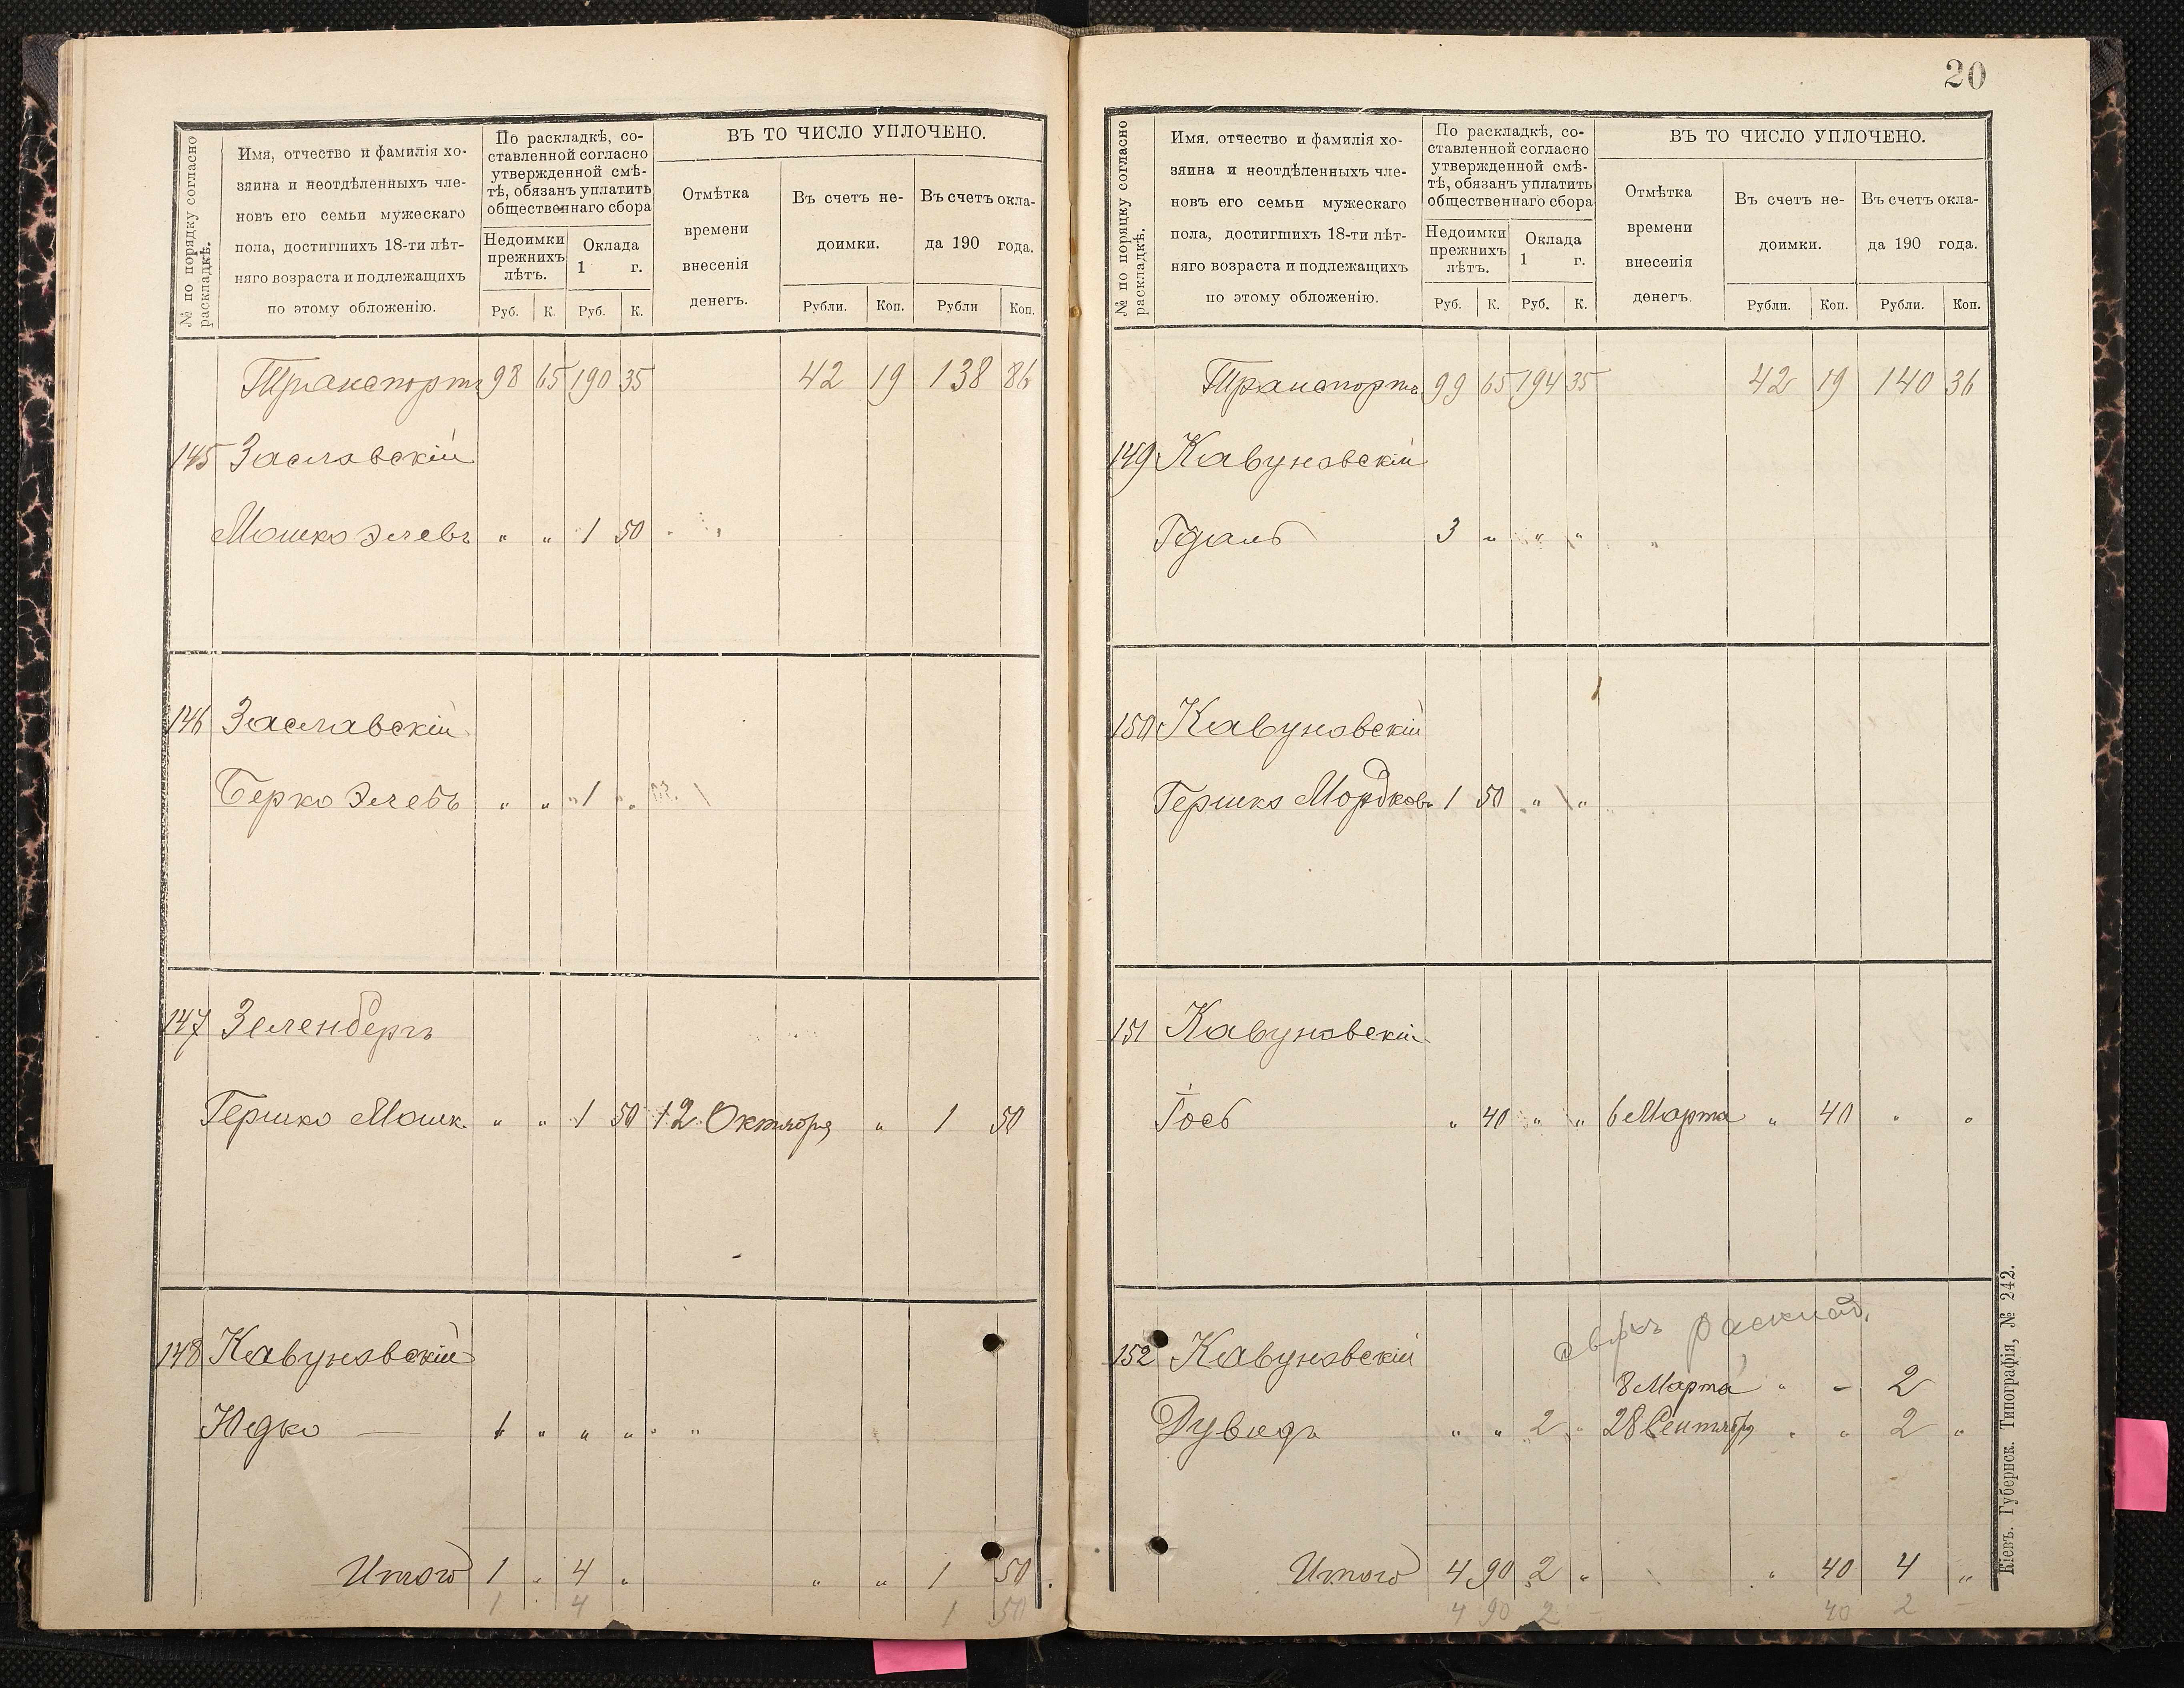 № по порядку согласно раскладкѣ.
Имя, отчество и фамилія хо-
зяина и неотдѣленныхъ чле-
новъ его семьи мужескаго
пола, достигшихъ 18-ти лѣт-
няго возраста и подлежащихъ
по этому обложенію.
По раскладкѣ, со-
ставленной согласно
утвержденной смѣ-
тѣ, обязанъ уплатить
общественнаго сбора
Недоимки прежнихъ лѣтъ.
Оклада 1 г.
ВЪ ТО ЧИСЛО УПЛОЧЕНО.
Отмѣтка времени внесенія денегъ.
Въ счетъ не-
доимки.
Въ счетъ окла-
да 190 года.
Руб. К. Руб. К. Рубли. Коп. Рубли Коп.
Транспортъ 98 65 190 35 42 19 138 86
145 Заславскій
Мошко Элевъ " " 1 50
146 Заславскій
Берко Элевъ " " 1 "
147 Зеленбергъ
Гершко Мошк. " " 1 50 12 Октября " 1 50
148 Кавуновскій
Юдко — 1 " " "
Итого 1 " 4 " " " 1 50.
1 4 1 50
20
№ по порядку согласно раскладкѣ.
Имя. отчество и фамилія хо-
зяина и неотдѣленныхъ чле-
новъ его семьи мужескаго
пола, достигшихъ 18-ти лѣт-
няго возраста и подлежащихъ
по этому обложенію.
По раскладкѣ, со-
ставленной согласно
утвержденной смѣ-
тѣ, обязанъ уплатить
общественнаго сбора
Недоимки прежнихъ лѣтъ.
Оклада 1 г.
ВЪ ТО ЧИСЛО УПЛОЧЕНО.
Отмѣтка времени внесенія денегъ.
Въ счетъ не-
доимки.
Въ счетъ окла-
да 190 года.
Руб. К. Руб. К. Рубли. Коп. Рубли. Коп.
Транспортъ 99 65 194 35 42 19 140 36
149 Кавуновскій
Гдаль 3 " " "
150 Кавуновскій
Гершко Мордков. 1 50 " "
151 Кавуновскій
Іось " 40 " " 6 Марта " 40 " "
сверхъ расклад.
152 Кавуновскій
8 Марта " – 2
Дувидъ " " 2 " 28 Сентября " " 2 "
Итого 4 90 2 " " 40 4 "
4 90 2 – 40 2 –
Кіевъ. Губернск. Типографія, № 242.